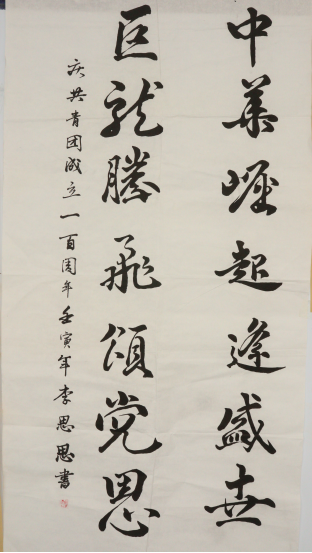 中華崛起逢盛世
巨龍騰飛頌党恩
庆共青团成立一百周年壬寅年李思思書